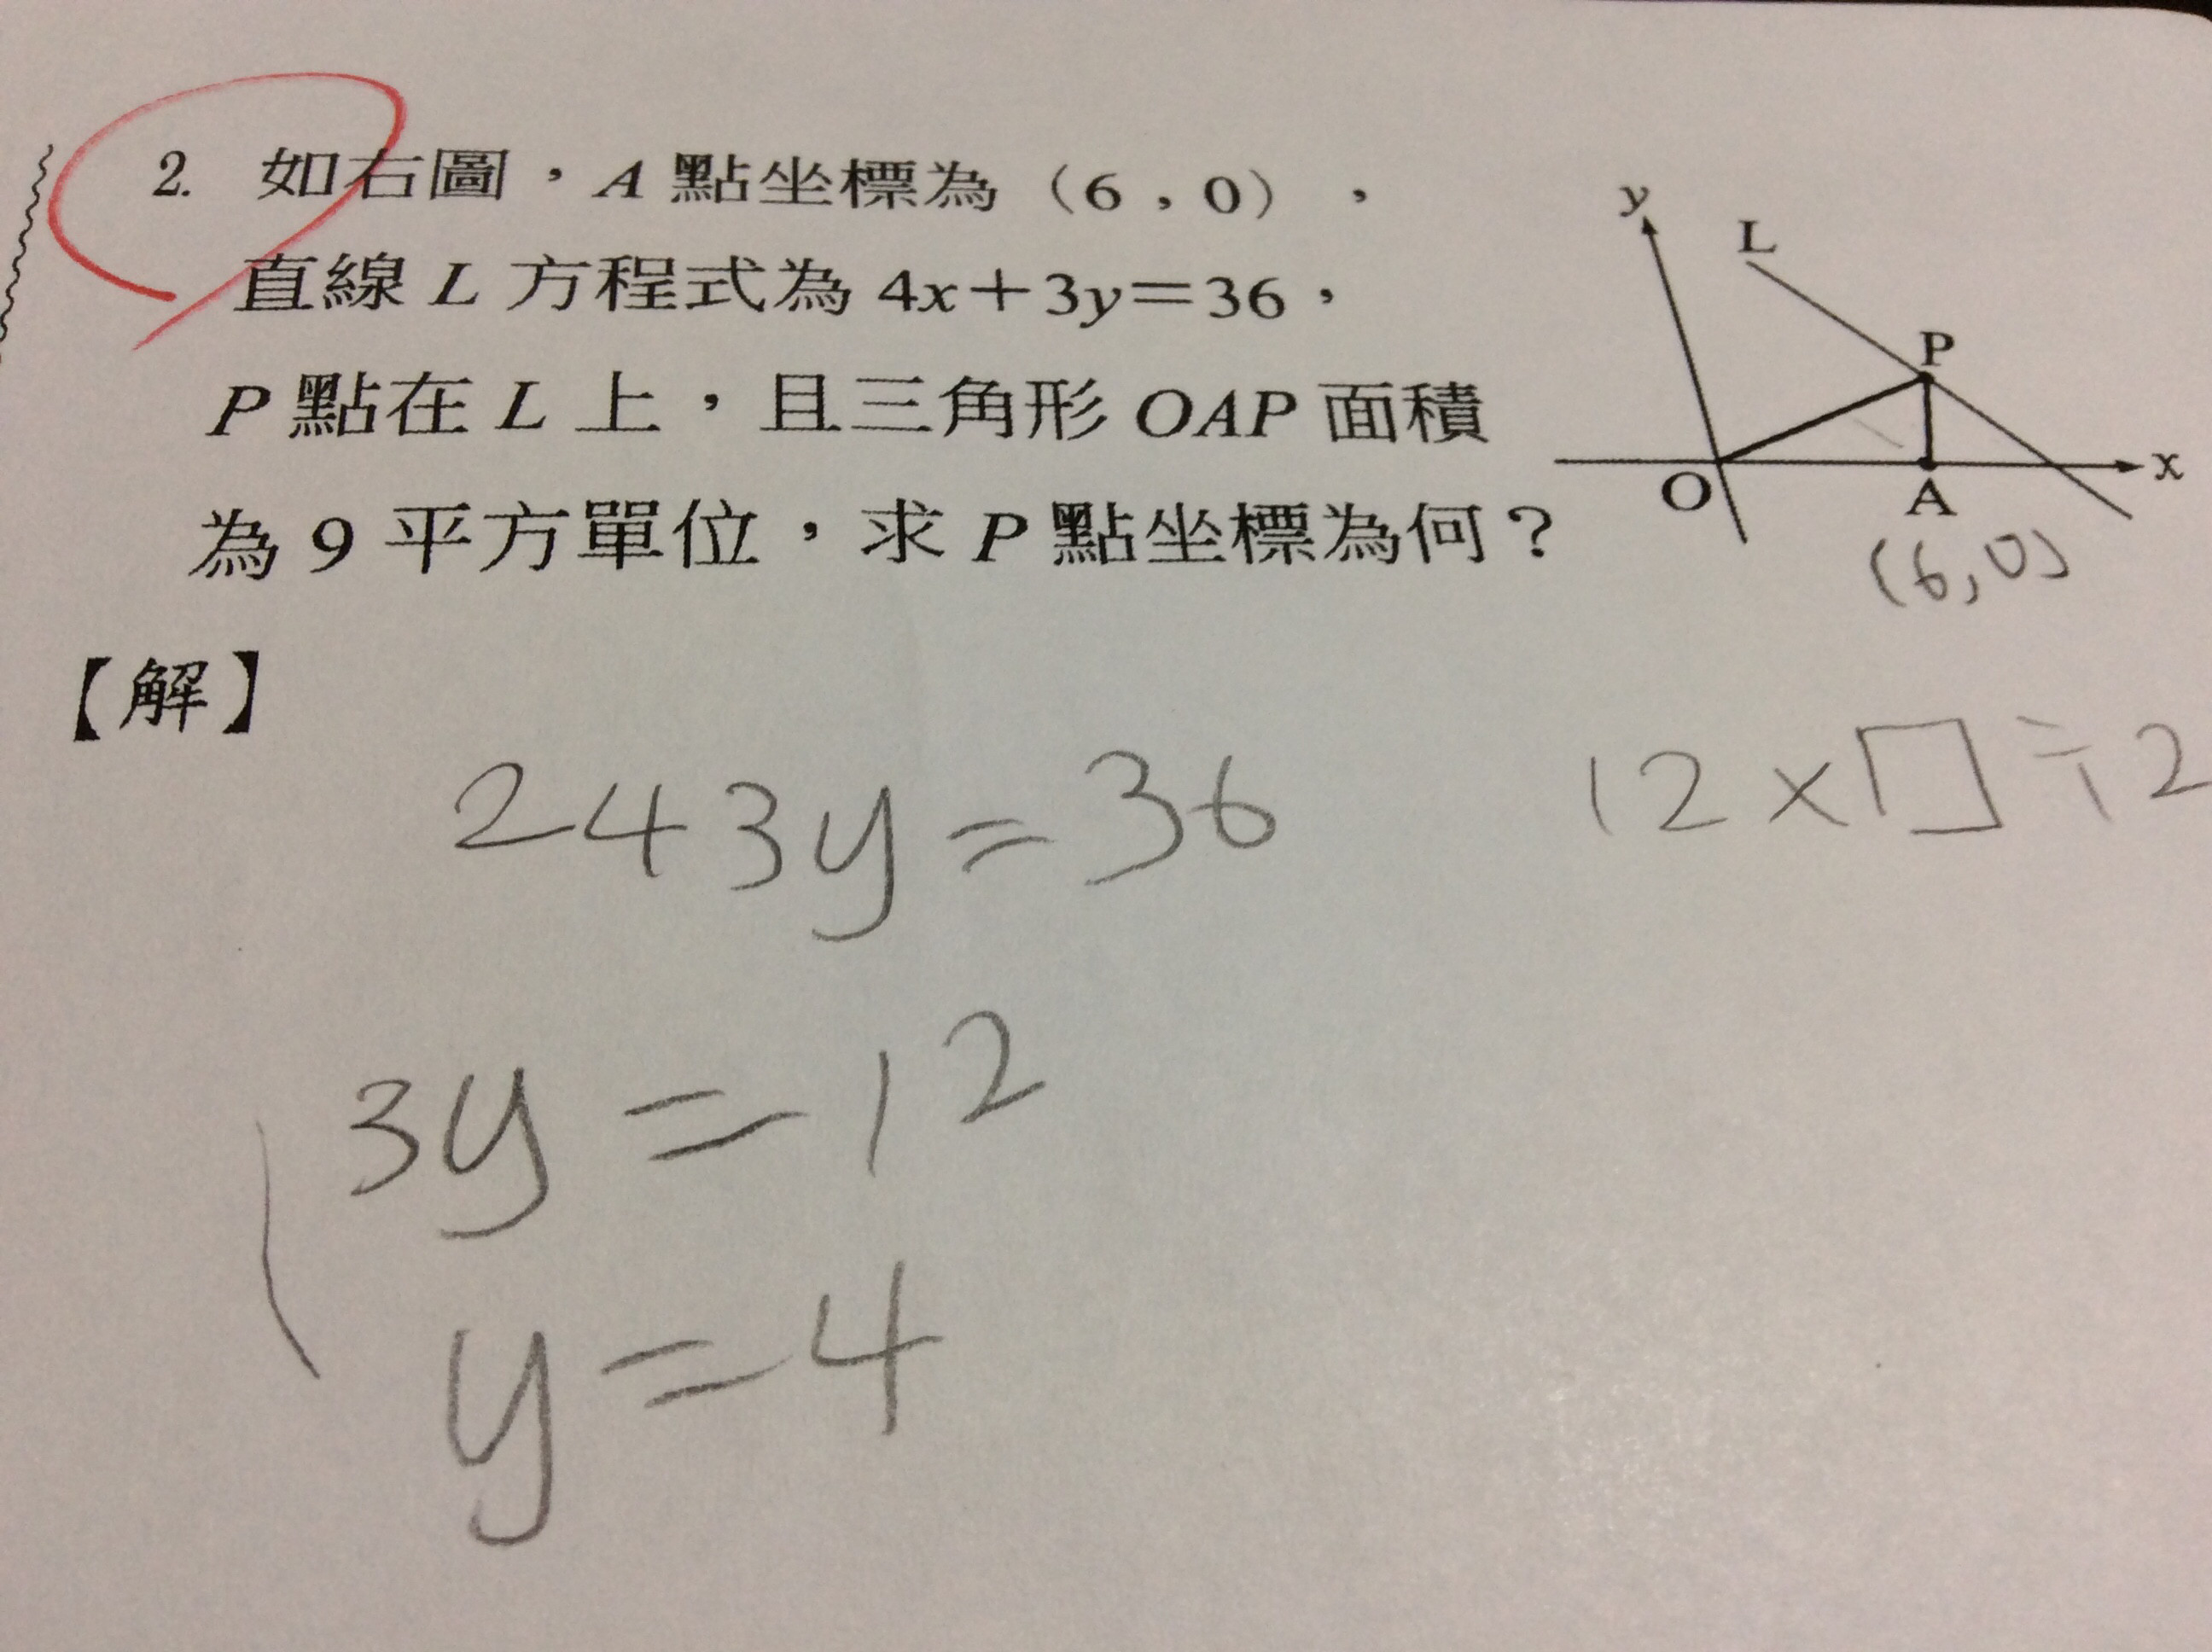 2. 如右圖，A 點坐標為（6，0），
直線 L 方程式為 4x＋3y＝36，
P 點在 L 上，且三角形 OAP 面積
為 9 平方單位，求 P 點坐標為何？
y
L
P
O
A
x
(6,0)
【解】
243y=36
12×□÷2
3y=12
y=4